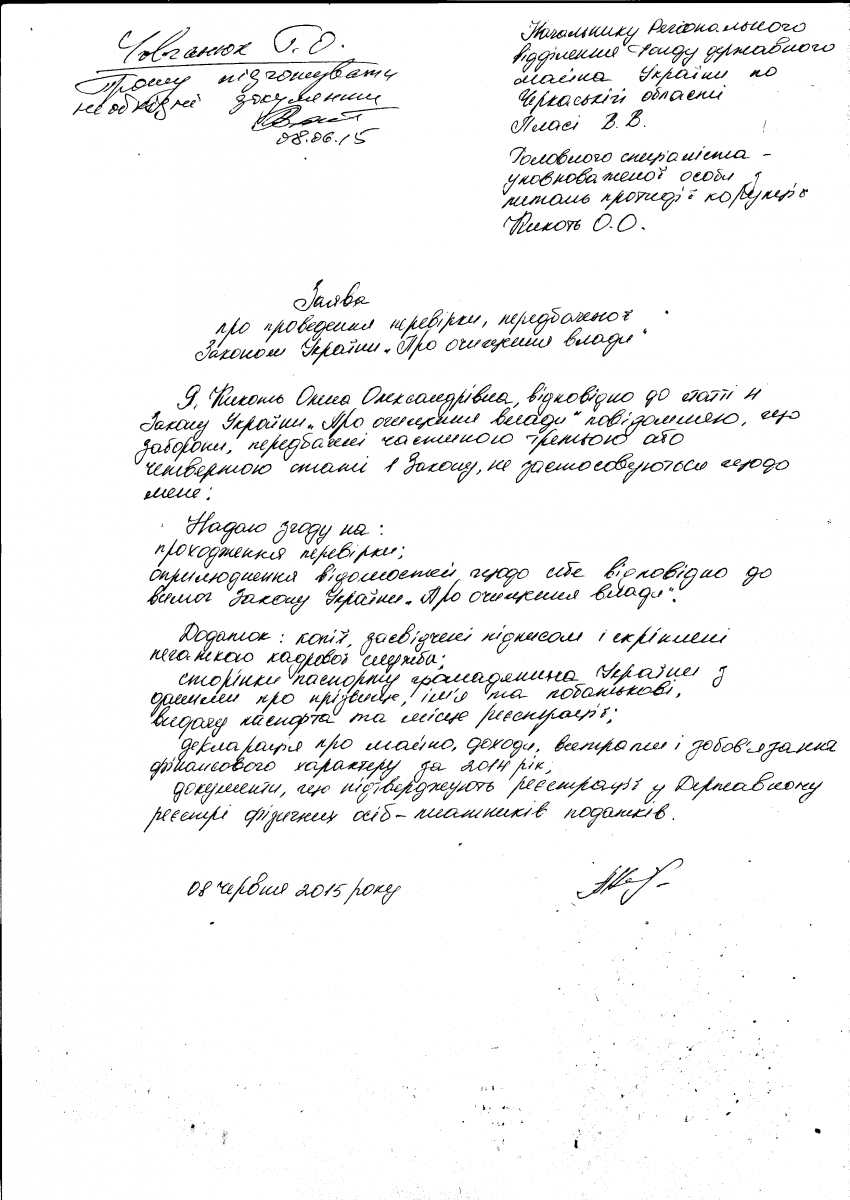 Човганюк Г. О.
Прошу підготувати
необхідні документи
08.06.15
Начальнику Регіонального
відділення Фонду державного
майна України по
Черкаській області
Пласі В. В.
Головного спеціаліста –
уповноваженої особи з
питань протидії корупції
Кикоть О.О.
Заява
про проведення перевірки, передбаченої
Законом України „Про очищення влади"
Я, Кикоть Олександрівна, відповідно до статті 4
Закону України „Про очищення влади" повідомляю, що
заборони, передбачені частиною третьою або
четвертою статті 1 Закону, не застосовуються щодо
мене:
Надаю згоду на:
проходження перевірки;
оприлюднення відомостей щодо себе відповідно до
вимог Закону України „Про очищення влади".
Додаток: копії, засвідчені підписом і скріплені
печаткою кадрової служби;
сторінки паспорту громадянина України з
даними про прізвище, ім'я та по батькові,
видачу паспорта та місце реєстрації;
декларація про майно, доходи, витрати і зобов'язання
фінансового характеру за 2014 рік;
документи, що підтверджують реєстрації у Державному
реєстрі фізичних осіб – платників податків.
08 червня 2015 року